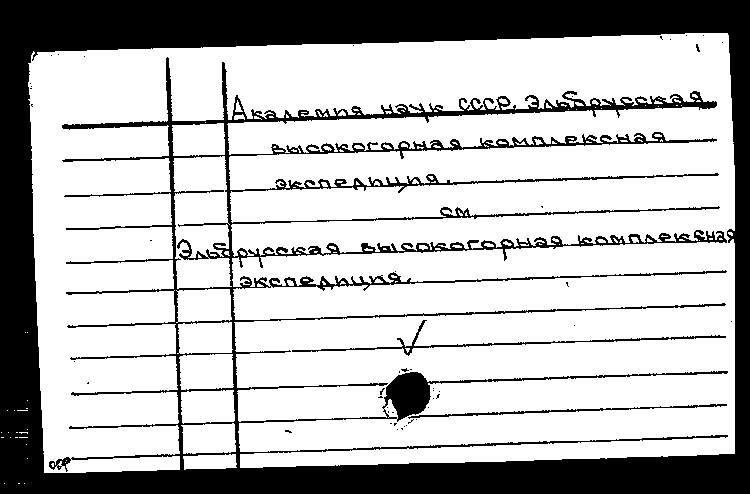 Академия наук СССР. Эльбрусская
высокогорная комплексная
экспедиция.
см.
Эльбрусская высокогорная комплексная
экспедиция.